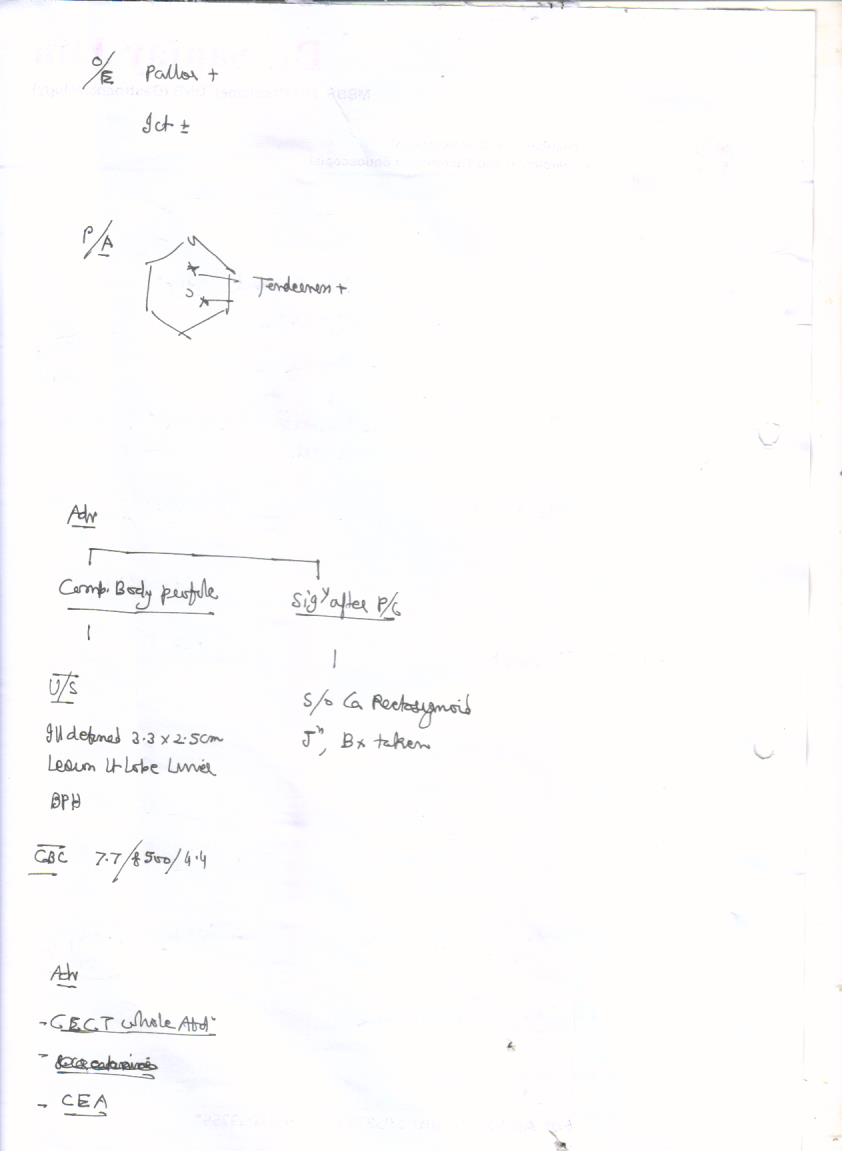 O/E Pallor +
Ict ±
P/A
Tenderness +
Adv
Comp. Body profile
Sig^y after P/C
U/S
S/o Ca Rectosigmoid
J^n, Bx taken
Ill defined 3.3 x 2.5cm
Lesion Lt Lobe Liver
BPH
CBC 7.7/8500/4.4
Adv
- CECT whole Abd^n
- CEA